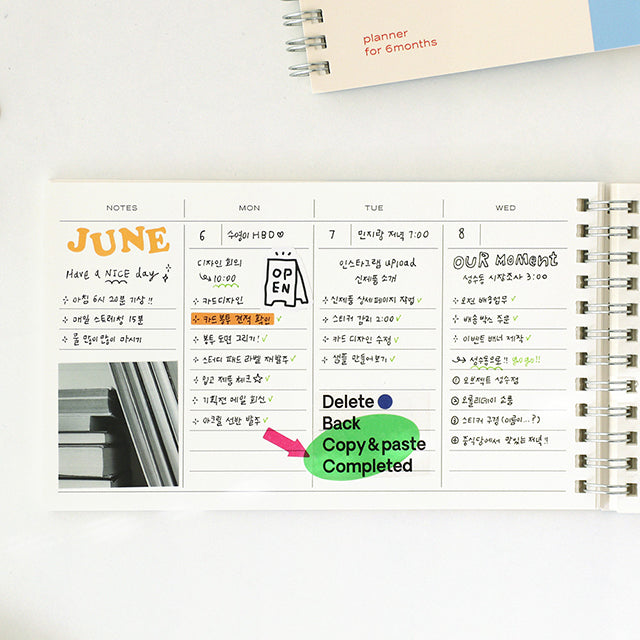 planner
for 6months
NOTES
MON
TUE
WED
JUNE
Have a NICE day
아침 6시 20분 기상!!
매일 스트레칭 15분
물 많이많이 마시기
6
수영이 HBD♡
디자인 회의
10:00
OPEN
카드디자인
카드봉투 견적 확인
봉투 도면 그리기!
스터디 패드 라벨 재발주
입고 제품 체크☆
기획전 메일 회신
아크릴 선반 발주
7
민지랑 저녁 7:00
인스타그램 upload
신제품 소개
신제품 상세페이지 작업
스티커 감리 2:00
카드 디자인 수정
샘플 만들어보기
Delete
Back
Copy & paste
Completed
8
OUR MOMENT
성수동 시장조사 3:00
오전 배송업무
배송 박스 주문
이벤트 배너 제작
성수동으로!! go go!!
① 오브젝트 성수점
② 오롤리데이 쇼룸
③ 스티커 구경 (이구이...?)
④ 중식당에서 맛있는 저녁!!